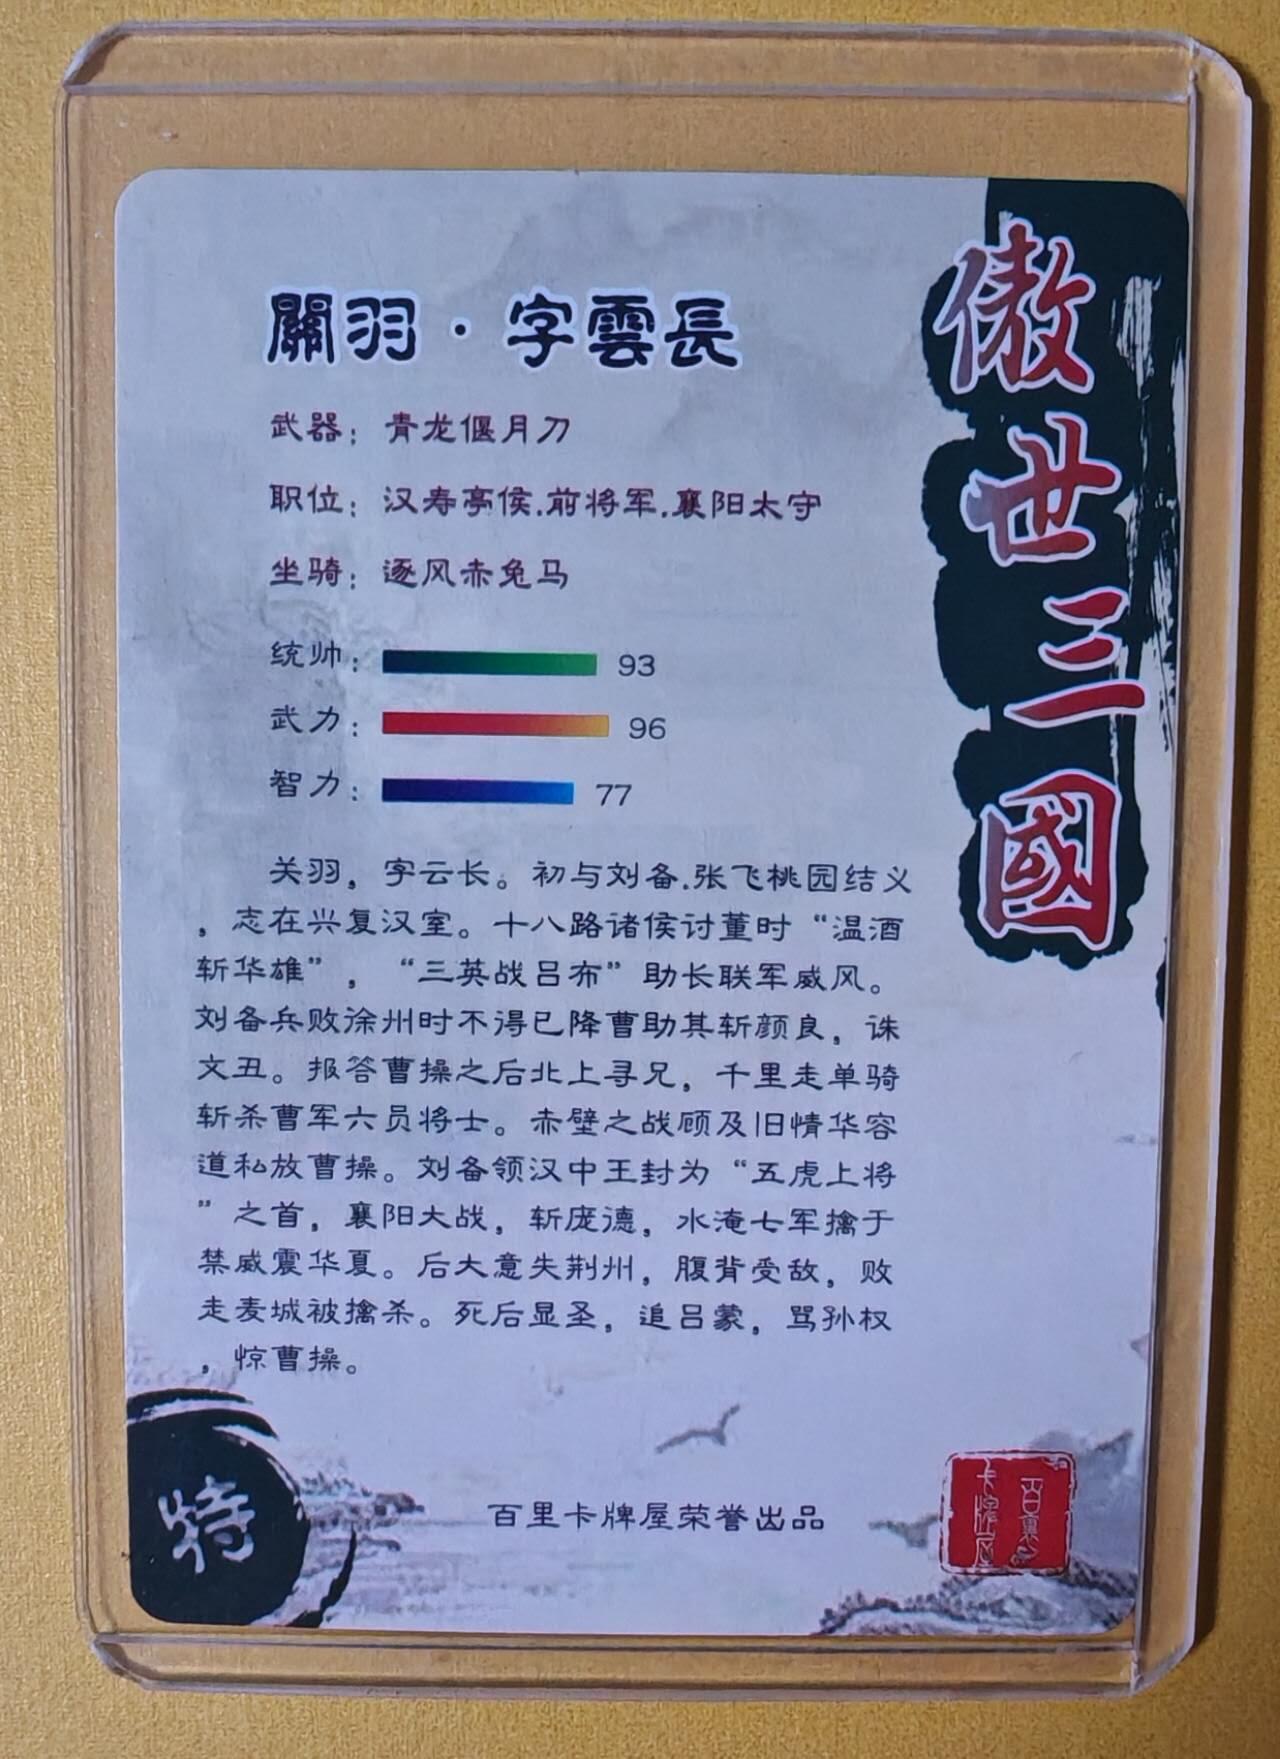 關羽·字雲長
武器：青龙偃月刀
职位：汉寿亭侯.前将军.襄阳太守
坐骑：逐风赤兔马
统帅：93
武力：96
智力：77
关羽，字云长。初与刘备.张飞桃园结义
，志在兴复汉室。十八路诸侯讨董时“温酒
斩华雄”，“三英战吕布”助长联军威风。
刘备兵败徐州时不得已降曹助其斩颜良，诛
文丑。报答曹操之后北上寻兄，千里走单骑
斩杀曹军六员将士。赤壁之战顾及旧情华容
道私放曹操。刘备领汉中王封为“五虎上将
”之首，襄阳大战，斩庞德，水淹七军擒于
禁威震华夏。后大意失荆州，腹背受敌，败
走麦城被擒杀。死后显圣，追吕蒙，骂孙权
，惊曹操。
傲世三國
特
百里卡牌屋荣誉出品
百里
卡牌屋